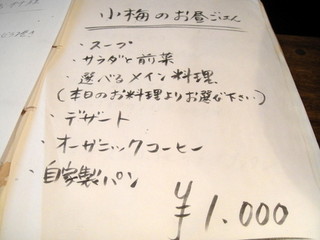 小梅のお昼ごはん
・スープ
・サラダと前菜
・選べるメイン料理
(本日のお料理よりお選び下さい)
・デザート
・オーガニックコーヒー
・自家製パン
¥1.000